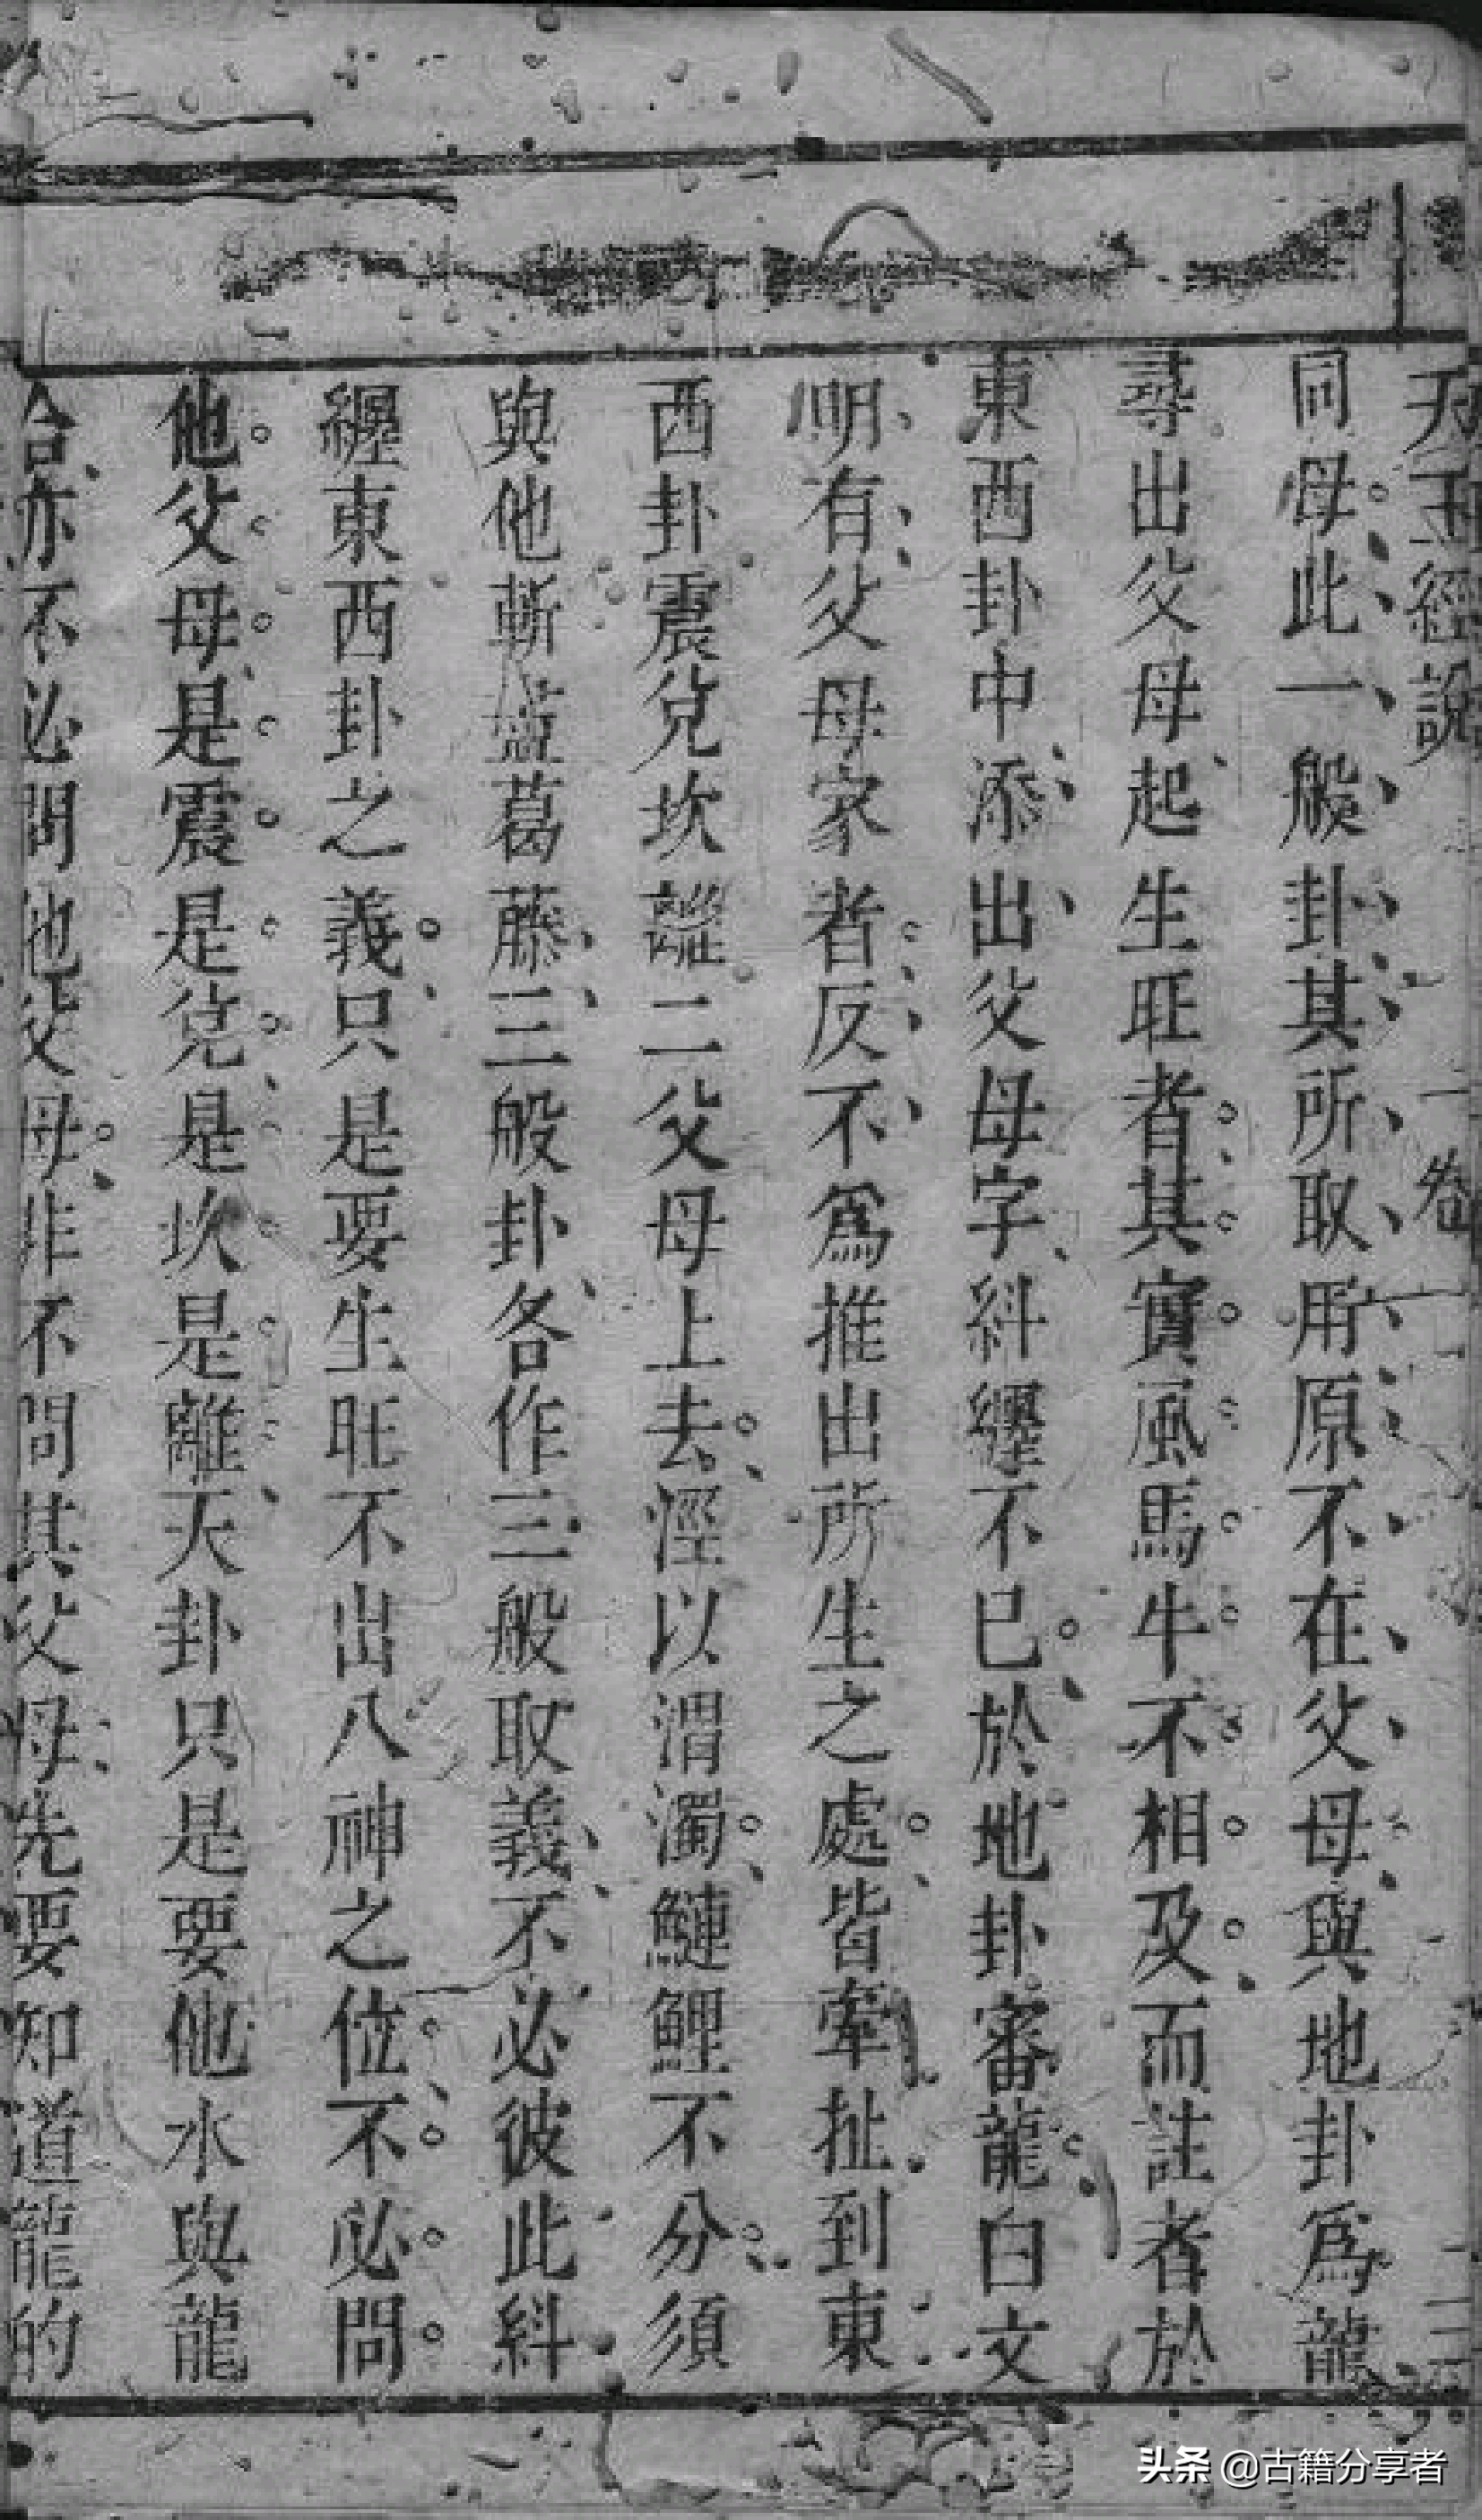 天玉經說 卷一
同母此一般卦其所取用原不在父母與地卦爲龍
尋出父母起生旺者其實風馬牛不相及而註者於
東西卦中添出父母字糾纒不已於地卦審龍白文
明有父母家者反不爲推出所生之處皆牽扯到東
西卦震兌坎離二父母上去涇以渭濁鰱鯉不分須
與他斬葛藤三般卦各作三般取義不必彼此糾
纒東西卦之義只是要生旺不出八神之位不必問
他父母是震是兌是坎是離天卦只是要他水與龍
合亦不必問他父母非不問其父母先要知道龍的
头条 @古籍分享者